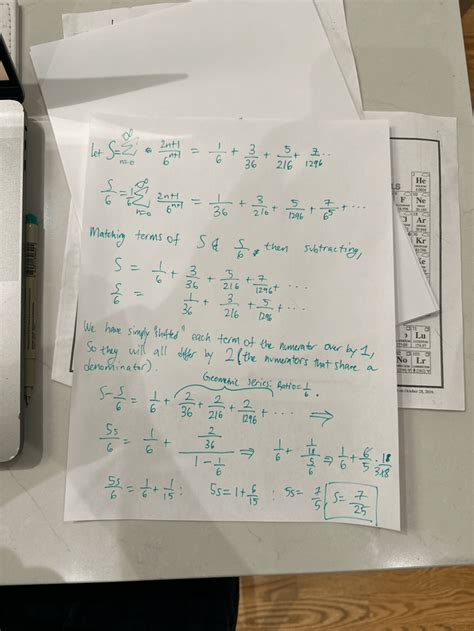 let S = ∞Σn=0 2n+1/6^(n+1) = 1/6 + 3/36 + 5/216 + 7/1296 ...
S/6 = 1/6 ∞Σn=0 2n+1/6^(n+1) = 1/36 + 3/216 + 5/1296 + 7/6^5 + ...
Matching terms of S & S/6, then subtracting,
S = 1/6 + 3/36 + 5/216 + 7/1296 + ...
S/6 = 1/36 + 3/216 + 5/1296 + ...
We have simply "shifted" each term of the numerator over by 1,
So they will all differ by 2 (the numerators that share a
denominator).
Geometric series: Ratio = 1/6.
S - S/6 = 1/6 + 2/36 + 2/216 + 2/1296 + ... ⇒
5s/6 = 1/6 + (2/36)/(1 - 1/6) ⇒ 1/6 + (1/18)/(5/6) ⇒
5s/6 = 1/6 + 1/15 : 5s = 1 + 6/15 : 5s = 7/5 S = 7/25
He
F Ne
Ar
Kr
Xe
Lu
No Lr